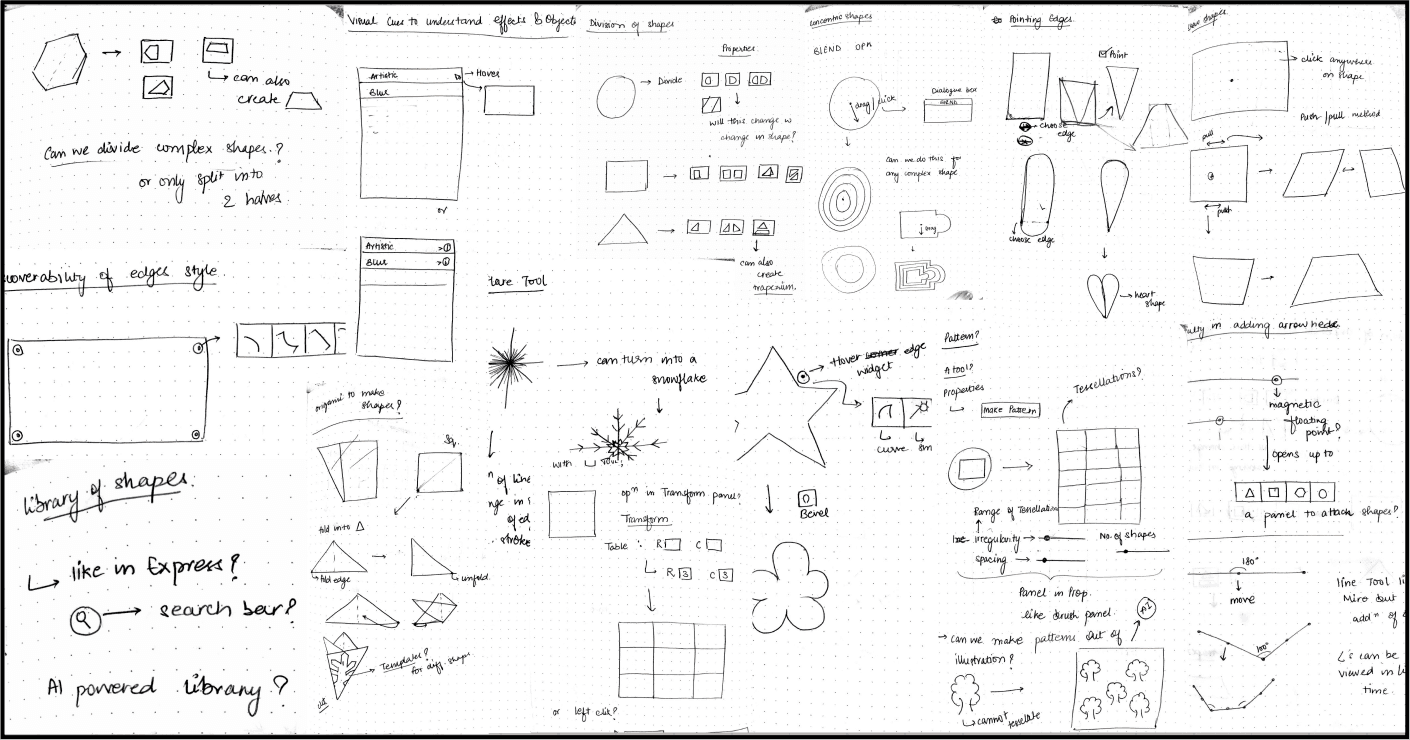 can also
create
Can we divide complex shapes.?
or only split into
2 halves.
Visual Cues to understand effects & Objects
Artistic
Hover
Blur
or
Artistic
Blur
Division of shapes
Properties
Divide
will this change w
change in shape?
can also
create
trapezium.
concentric shapes
BLEND OPn
drag/click
Dialogue box
BLEND
can we do this for
any complex shape
drag
Pointing Edges.
Point
choose
edge
choose edge
heart
shape
shapes.
click anywhere
on shape
Push/pull method
pull
push
overability of edges style.
origami to make
shapes?
Sq.
fold into △
fold edge
unfold.
Templates?
for diff. shapes
Library of shapes.
like in Express?
search bar?
AI powered library?
lare Tool
can turn into a
snowflake
with
n of line
nge in s
of ed
stroke
opn in Transform panel?
Transform
Table : R C
R 3 C 3
or left click?
Hover corner edge
widget
curve
Bevel
Pattern?
A tool?
Properties
Make Pattern
Tessellations?
Range of Tessellation
irregularity
spacing
No. of shapes
Panel in Prop.
like brush panel.
can we make patterns out of
illustration?
AI
cannot tessellate
ulty in adding arrow heads.
magnetic
floating
point?
opens up to
a panel to attach shapes?
180°
move
100°
line Tool li
Miro but
addn of
∠s can be
viewed in li
time.